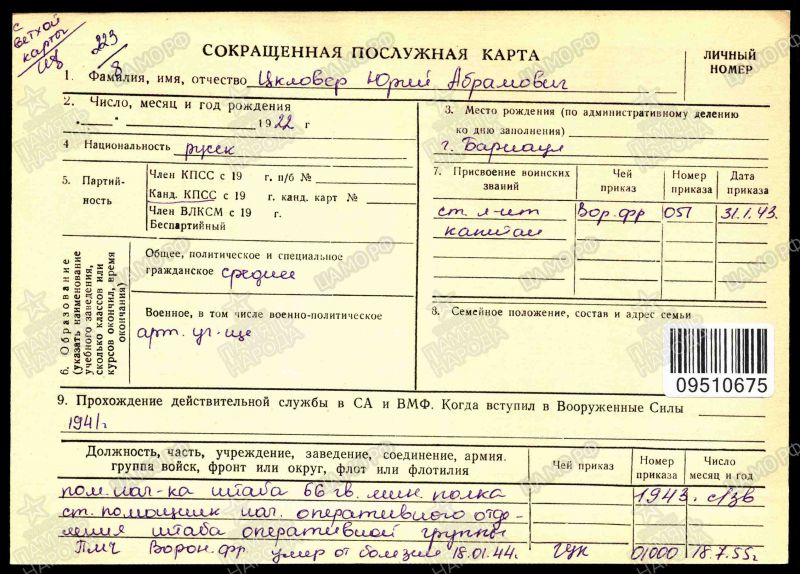 с ветхой карты
223
8
СОКРАЩЕННАЯ ПОСЛУЖНАЯ КАРТА
ЛИЧНЫЙ НОМЕР
1. Фамилия, имя, отчество Цкловер Юрий Абрамович
2. Число, месяц и год рождения
„ “ 1922 г
3. Место рождения (по административному делению
ко дню заполнения)
г. Барнаул
4 Национальность русск
5. Партий-
ность
Член КПСС с 19 г. п/б №
Канд. КПСС с 19 г. канд. карт №
Член ВЛКСМ с 19 г.
Беспартийный
7. Присвоение воинских званий
Чей приказ
Номер приказа
Дата приказа
ст. л-нт Вор. фр 051 31.1.43.
капитан
6. Образование
(указать наименование
учебного заведения,
сколько классов или
курсов окончил, время
окончания)
Общее, политическое и специальное
гражданское среднее
Военное, в том числе военно-политическое
арт. уч-ще
8. Семейное положение, состав и адрес семьи
09510675
9. Прохождение действительной службы в СА и ВМФ. Когда вступил в Вооруженные Силы
1941г
Должность, часть, учреждение, заведение, соединение, армия.
группа войск, фронт или округ, флот или флотилия
Чей приказ
Номер приказа
Число месяц и год
пом. нач-ка штаба 66 гв. мин. полка 1943. с/зв
ст. помощник нач. оперативного отде-
ления штаба оперативной группы
ГМЧ Ворон. фр. умер от болезни 18.01.44. гук 01000 18.7.55г
ЦАМО РФ
ПАМЯТЬ НАРОДА